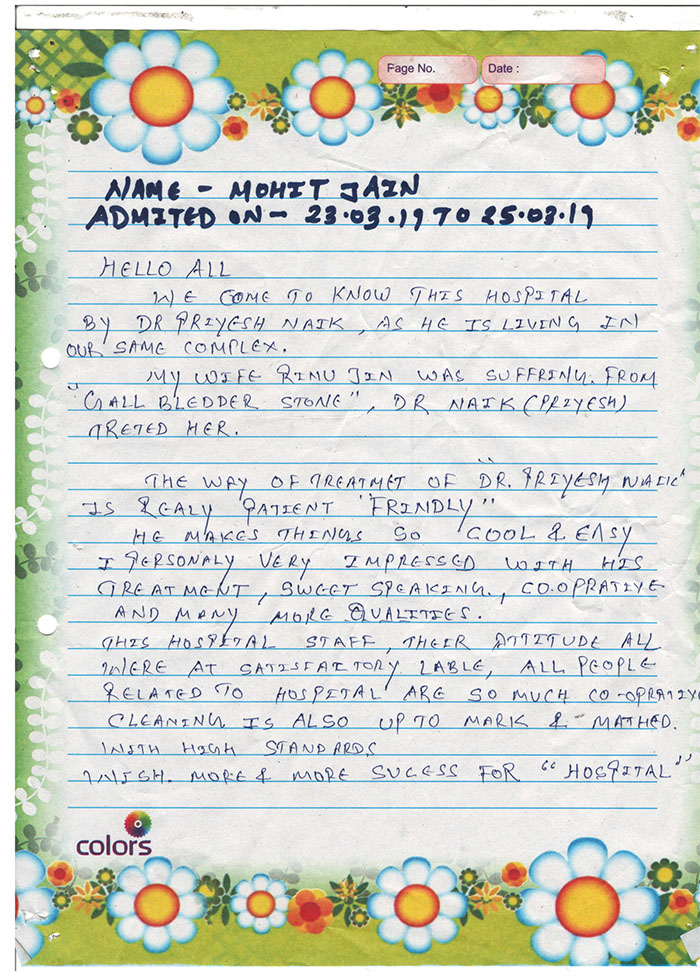 Page No.
Date :
NAME - MOHIT JAIN
ADMITED ON - 23.03.19 TO 25.03.19
HELLO ALL
WE COME TO KNOW THIS HOSPITAL
BY DR PRIYESH NAIK, AS HE IS LIVING IN
OUR SAME COMPLEX.
MY WIFE RINU JIN WAS SUFFRING. FROM
"GALL BLEDDER STONE", DR NAIK (PRIYESH)
TRETED HER.
THE WAY OF TREATMET OF "DR. PRIYESH NAIK"
IS REALY PATIENT "FRINDLY"
HE MAKES THINGS SO COOL & EASY
I PERSONALY VERY IMPRESSED WITH HIS
TREATMENT, SWEET SPEAKING., CO.OPRATIVE
AND MANY MORE QUALITIES.
THIS HOSPITAL STAFF, THEIR ATTITUDE ALL
WERE AT SATISFAITORY LABLE, ALL PEOPLE
RELATED TO HOSPITAL ARE SO MUCH CO-OPRATIV
CLEANING IS ALSO UP TO MARK & MATHED.
WITH HIGH STANDARDS
WISH. MORE & MORE SUCESS FOR "HOSPITAL"
colors